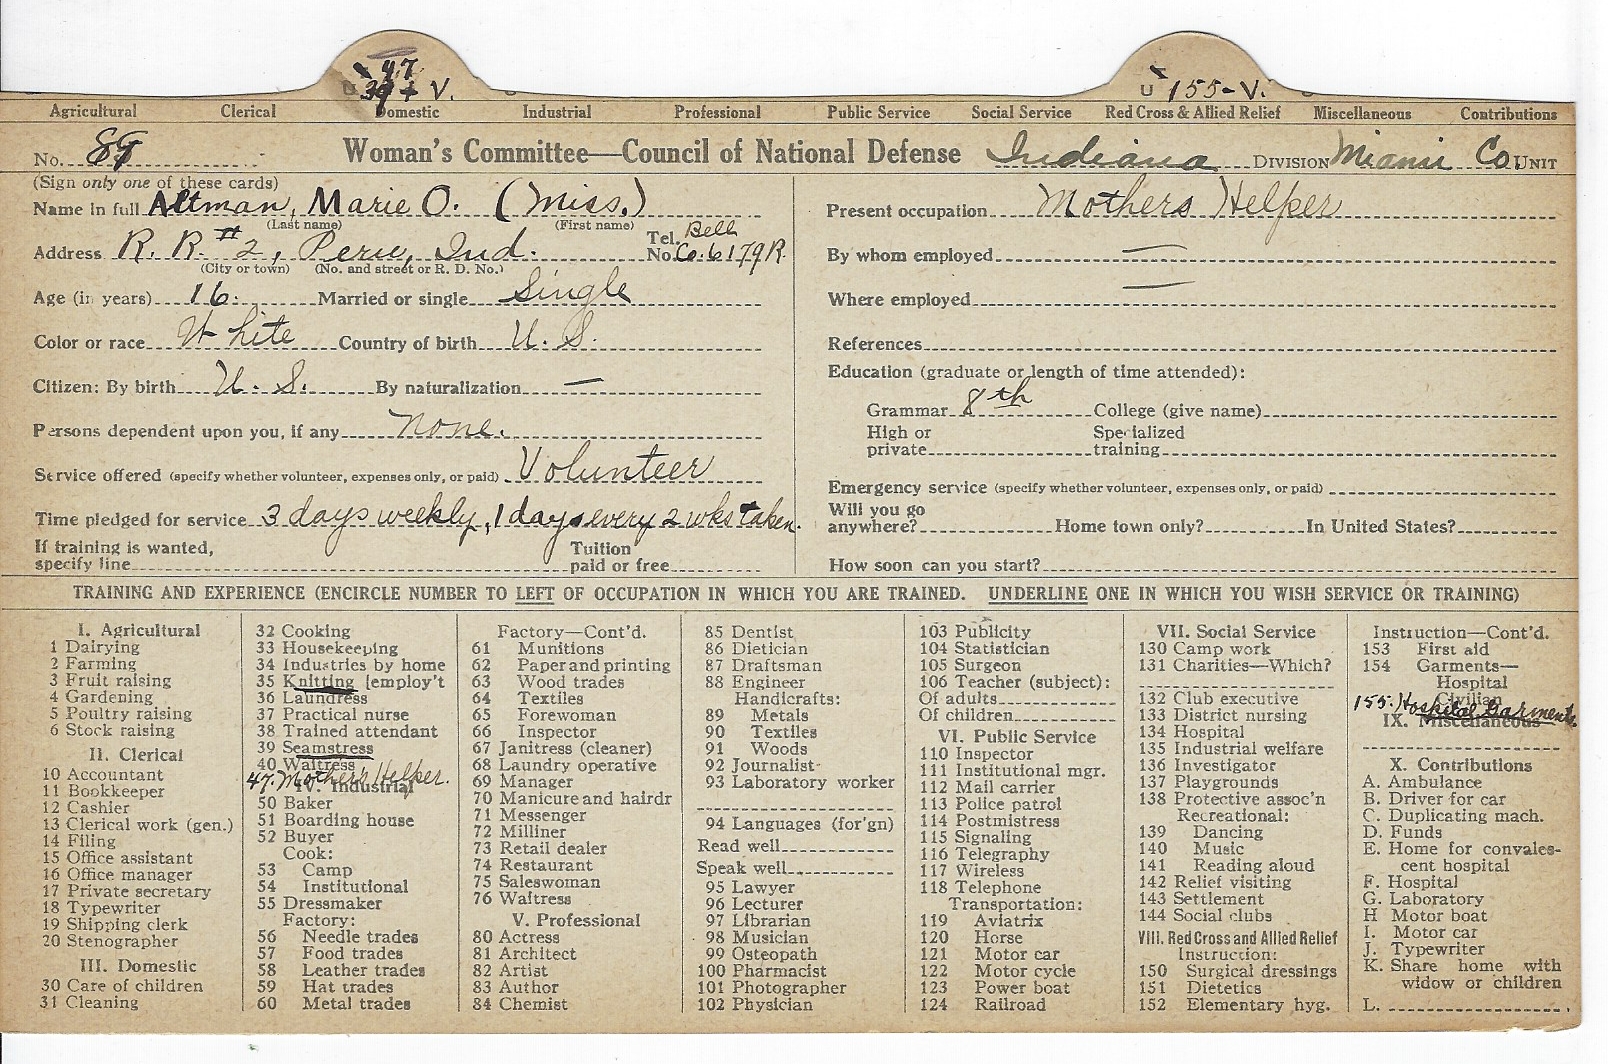 47
39 + V.
U 155-V.
Agricultural Clerical Domestic Industrial Professional Public Service Social Service Red Cross & Allied Relief Miscellaneous Contributions
No. 89 Woman's Committee—Council of National Defense Indiana DIVISION Miami Co. UNIT
(Sign only one of these cards)
Name in full Altman, Marie O. (Miss.)
(Last name) (First name)
Address R. R. #2, Peru, Ind. Tel. No. Bell Co. 6179R.
(City or town) (No. and street or R. D. No.)
Age (in years) 16. Married or single Single
Color or race White Country of birth U. S.
Citizen: By birth U. S. By naturalization —
Persons dependent upon you, if any none.
Service offered (specify whether volunteer, expenses only, or paid) Volunteer
Time pledged for service 3 days weekly, 1 day every 2 wks taken.
If training is wanted, specify line Tuition paid or free
Present occupation Mothers Helper
By whom employed —
Where employed —
References
Education (graduate or length of time attended):
Grammar 8th College (give name)
High or private Specialized training
Emergency service (specify whether volunteer, expenses only, or paid)
Will you go anywhere? Home town only? In United States?
How soon can you start?
TRAINING AND EXPERIENCE (ENCIRCLE NUMBER TO LEFT OF OCCUPATION IN WHICH YOU ARE TRAINED. UNDERLINE ONE IN WHICH YOU WISH SERVICE OR TRAINING)
I. Agricultural
1 Dairying
2 Farming
3 Fruit raising
4 Gardening
5 Poultry raising
6 Stock raising
II. Clerical
10 Accountant
11 Bookkeeper
12 Cashier
13 Clerical work (gen.)
14 Filing
15 Office assistant
16 Office manager
17 Private secretary
18 Typewriter
19 Shipping clerk
20 Stenographer
III. Domestic
30 Care of children
31 Cleaning
32 Cooking
33 Housekeeping
34 Industries by home
35 Knitting [employ't
36 Laundress
37 Practical nurse
38 Trained attendant
39 Seamstress
40 Waitress
47. Mother's Helper.
IV. Industrial
50 Baker
51 Boarding house
52 Buyer
Cook:
53 Camp
54 Institutional
55 Dressmaker
Factory:
56 Needle trades
57 Food trades
58 Leather trades
59 Hat trades
60 Metal trades
Factory—Cont'd.
61 Munitions
62 Paper and printing
63 Wood trades
64 Textiles
65 Forewoman
66 Inspector
67 Janitress (cleaner)
68 Laundry operative
69 Manager
70 Manicure and hairdr
71 Messenger
72 Milliner
73 Retail dealer
74 Restaurant
75 Saleswoman
76 Waitress
V. Professional
80 Actress
81 Architect
82 Artist
83 Author
84 Chemist
85 Dentist
86 Dietician
87 Draftsman
88 Engineer
Handicrafts:
89 Metals
90 Textiles
91 Woods
92 Journalist
93 Laboratory worker
94 Languages (for'gn)
Read well
Speak well
95 Lawyer
96 Lecturer
97 Librarian
98 Musician
99 Osteopath
100 Pharmacist
101 Photographer
102 Physician
103 Publicity
104 Statistician
105 Surgeon
106 Teacher (subject):
Of adults
Of children
VI. Public Service
110 Inspector
111 Institutional mgr.
112 Mail carrier
113 Police patrol
114 Postmistress
115 Signaling
116 Telegraphy
117 Wireless
118 Telephone
Transportation:
119 Aviatrix
120 Horse
121 Motor car
122 Motor cycle
123 Power boat
124 Railroad
VII. Social Service
130 Camp work
131 Charities—Which?
132 Club executive
133 District nursing
134 Hospital
135 Industrial welfare
136 Investigator
137 Playgrounds
138 Protective assoc'n
Recreational:
139 Dancing
140 Music
141 Reading aloud
142 Relief visiting
143 Settlement
144 Social clubs
VIII. Red Cross and Allied Relief
Instruction:
150 Surgical dressings
151 Dietetics
152 Elementary hyg.
Instruction—Cont'd.
153 First aid
154 Garments—
Hospital
Civilian
155. Hospital Garments.
IX. Miscellaneous
X. Contributions
A. Ambulance
B. Driver for car
C. Duplicating mach.
D. Funds
E. Home for convales-
cent hospital
F. Hospital
G. Laboratory
H Motor boat
I. Motor car
J. Typewriter
K. Share home with
widow or children
L.